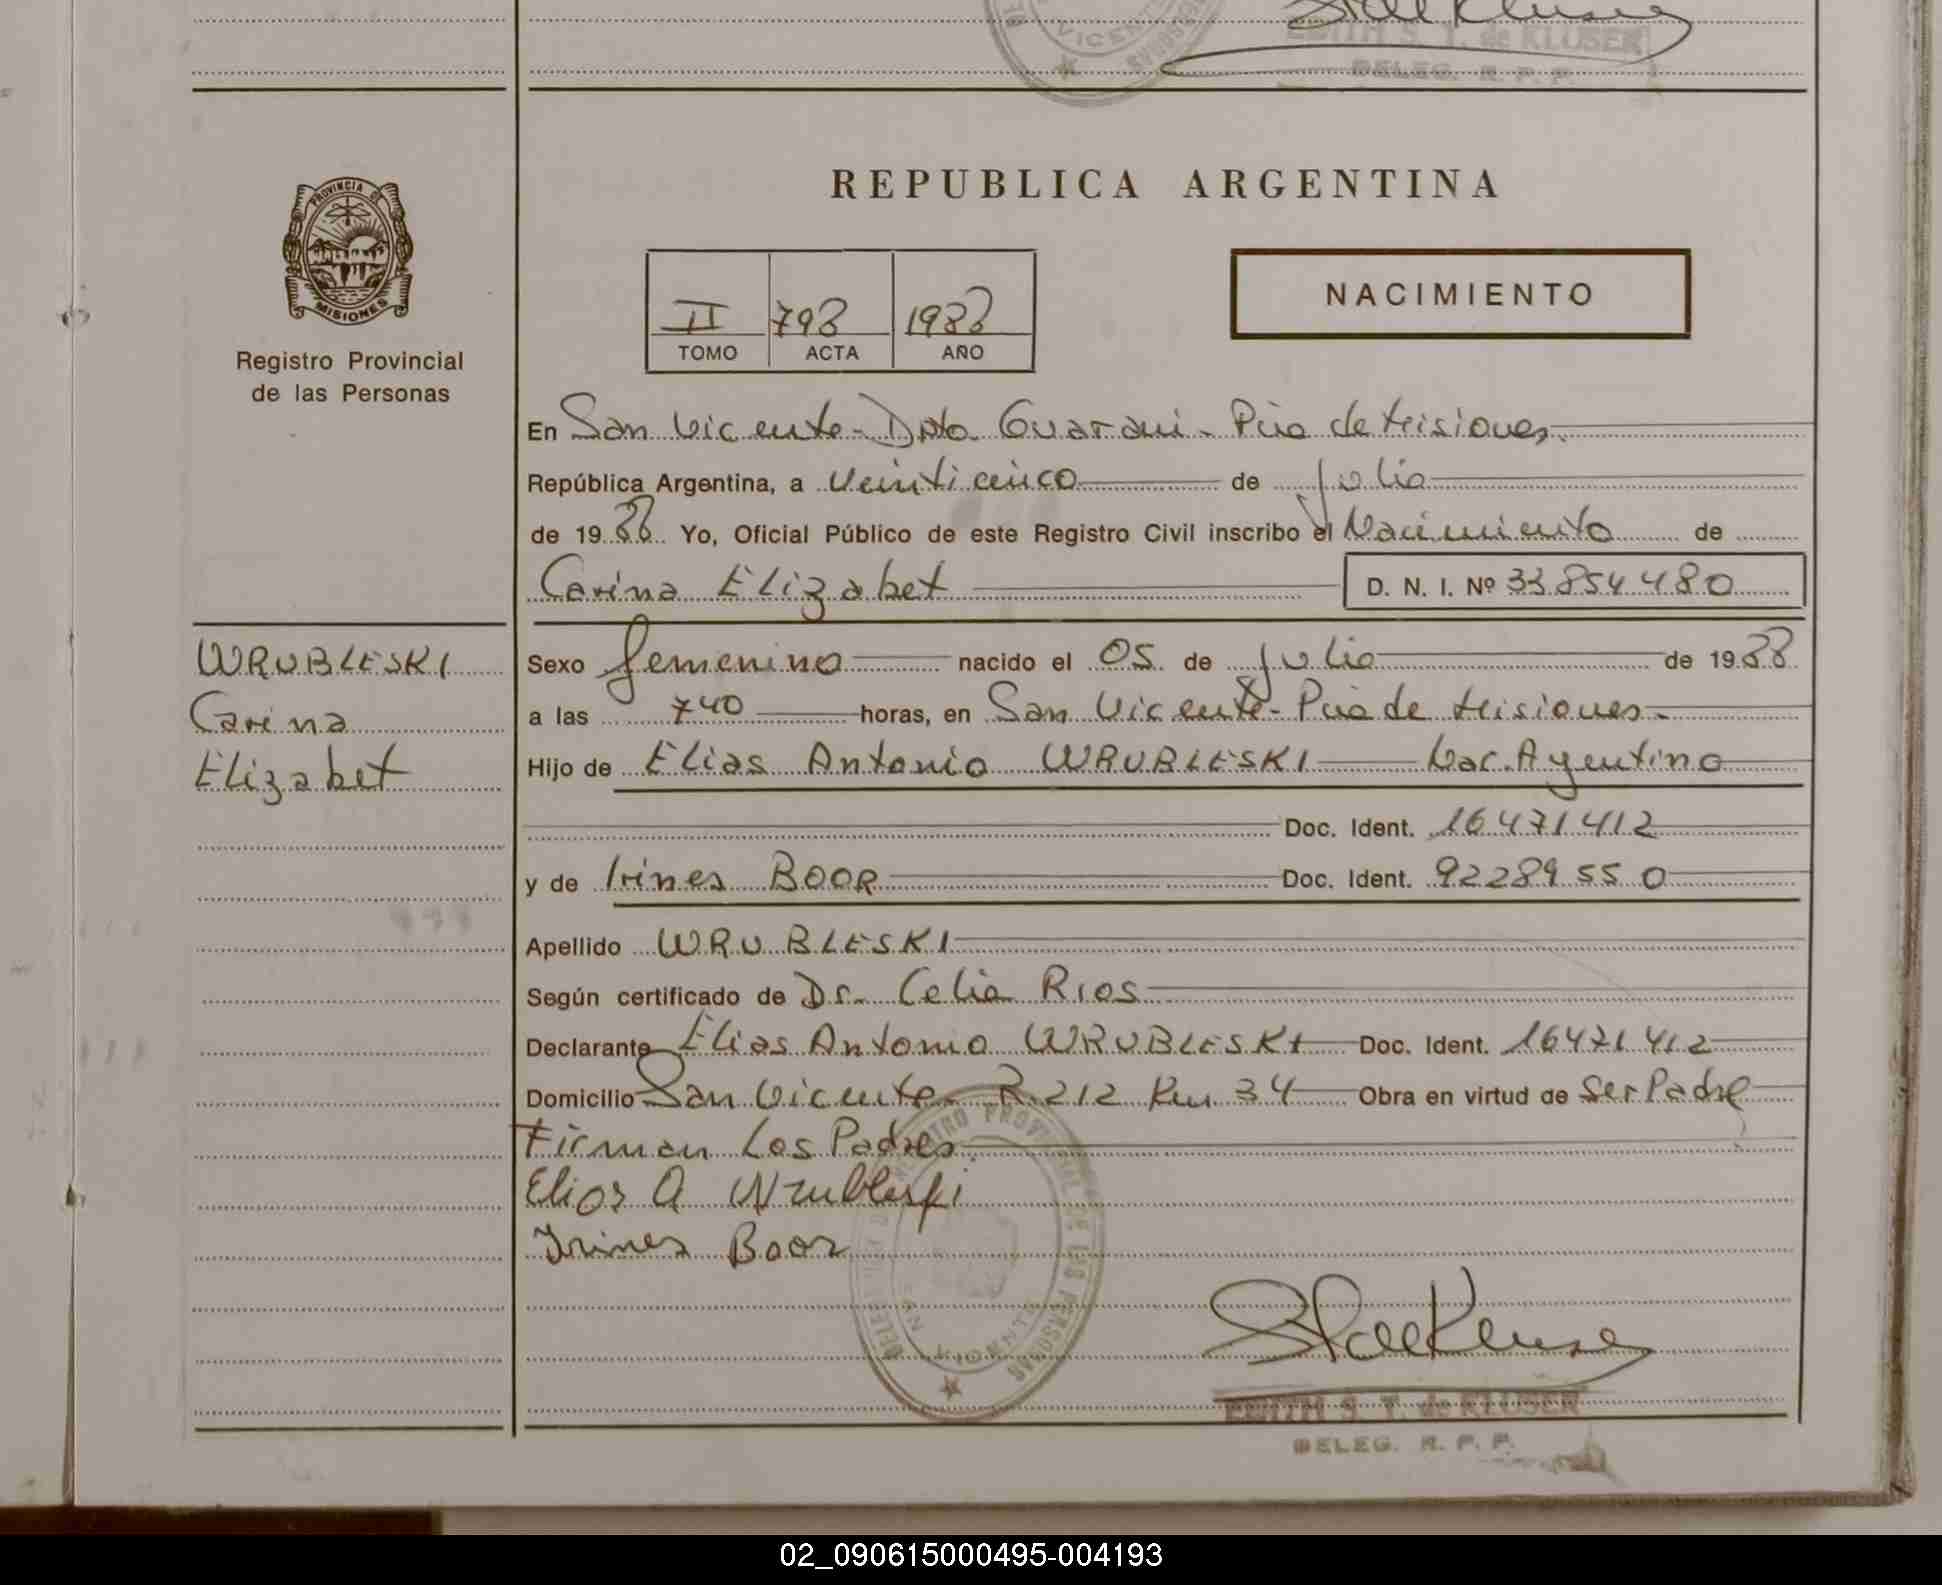 EDITH S. T. de KLUSER
DELEG. R. P. P.
VICENTE
PROVINCIA DE
MISIONES
Registro Provincial
de las Personas
REPUBLICA ARGENTINA
II 798 1988
TOMO ACTA AÑO
NACIMIENTO
En San Vicente - Dpto Guarani - Pcia de Misiones.
República Argentina, a Veinticinco de Julio
de 1988 Yo, Oficial Público de este Registro Civil inscribo el Nacimiento de
Carina Elizabet D. N. I. Nº 33854480
WRUBLESKI
Carina
Elizabet
Sexo femenino nacido el 05 de Julio de 1988
a las 740 horas, en San Vicente - Pcia de Misiones.
Hijo de Elias Antonio WRUBLESKI Nac. Argentino
Doc. Ident. 16471412
y de Irines BOOR Doc. Ident. 92289550
Apellido WRUBLESKI
Según certificado de Dr. Celia Rios
Declarante Elias Antonio WRUBLESKI Doc. Ident. 16471412
Domicilio San Vicente - R. 212 Km 34 Obra en virtud de Ser Padre
Firman Los Padres.
Elias A Wrubleski
Irines Boor
REGISTRO PROVINCIAL DE LAS PERSONAS
VICENTE
EDITH S. T. de KLUSER
DELEG. R. P. P.
02_090615000495-004193